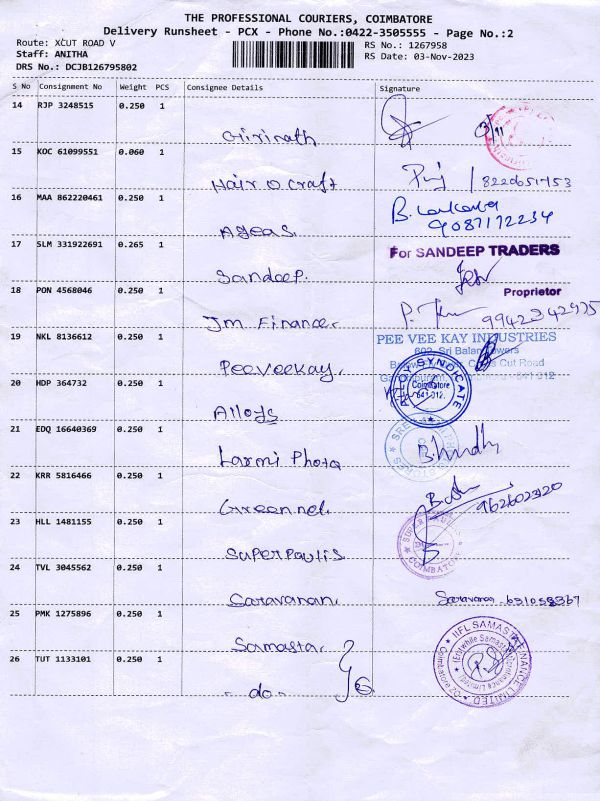 THE PROFESSIONAL COURIERS, COIMBATORE
Delivery Runsheet - PCX - Phone No.:0422-3505555 - Page No.:2
Route: XCUT ROAD V
RS No.: 1267958
Staff: ANITHA
RS Date: 03-Nov-2023
DRS No.: DCJB126795802
S No Consignment No Weight PCS Consignee Details Signature
14 RJP 3248515 0.250 1
Girinath 3/11
15 KOC 61099551 0.060 1
Hair O Craft 8220651753
16 MAA 862220461 0.250 1
Ageas. 9087172234
17 SLM 331922691 0.265 1
For SANDEEP TRADERS
Sandeep.
Proprietor
18 PON 4568046 0.250 1
Jm. Finance
19 NKL 8136612 0.250 1
PEE VEE KAY INDUSTRIES
Peeveekay.
20 HDP 364732 0.250 1
SYNDICATE
Coimbatore
641 012.
Alloys
21 EDQ 16640369 0.250 1
Laxmi Photo
22 KRR 5816466 0.250 1
Greennet.
23 HLL 1481155 0.250 1
Superpoulis
COIMBATORE
24 TVL 3045562 0.250 1
Saravanan. Saravanan
25 PMK 1275896 0.250 1
Samasta.
IIFL SAMASTA FINANCE LIMITED
26 TUT 1133101 0.250 1
- do -